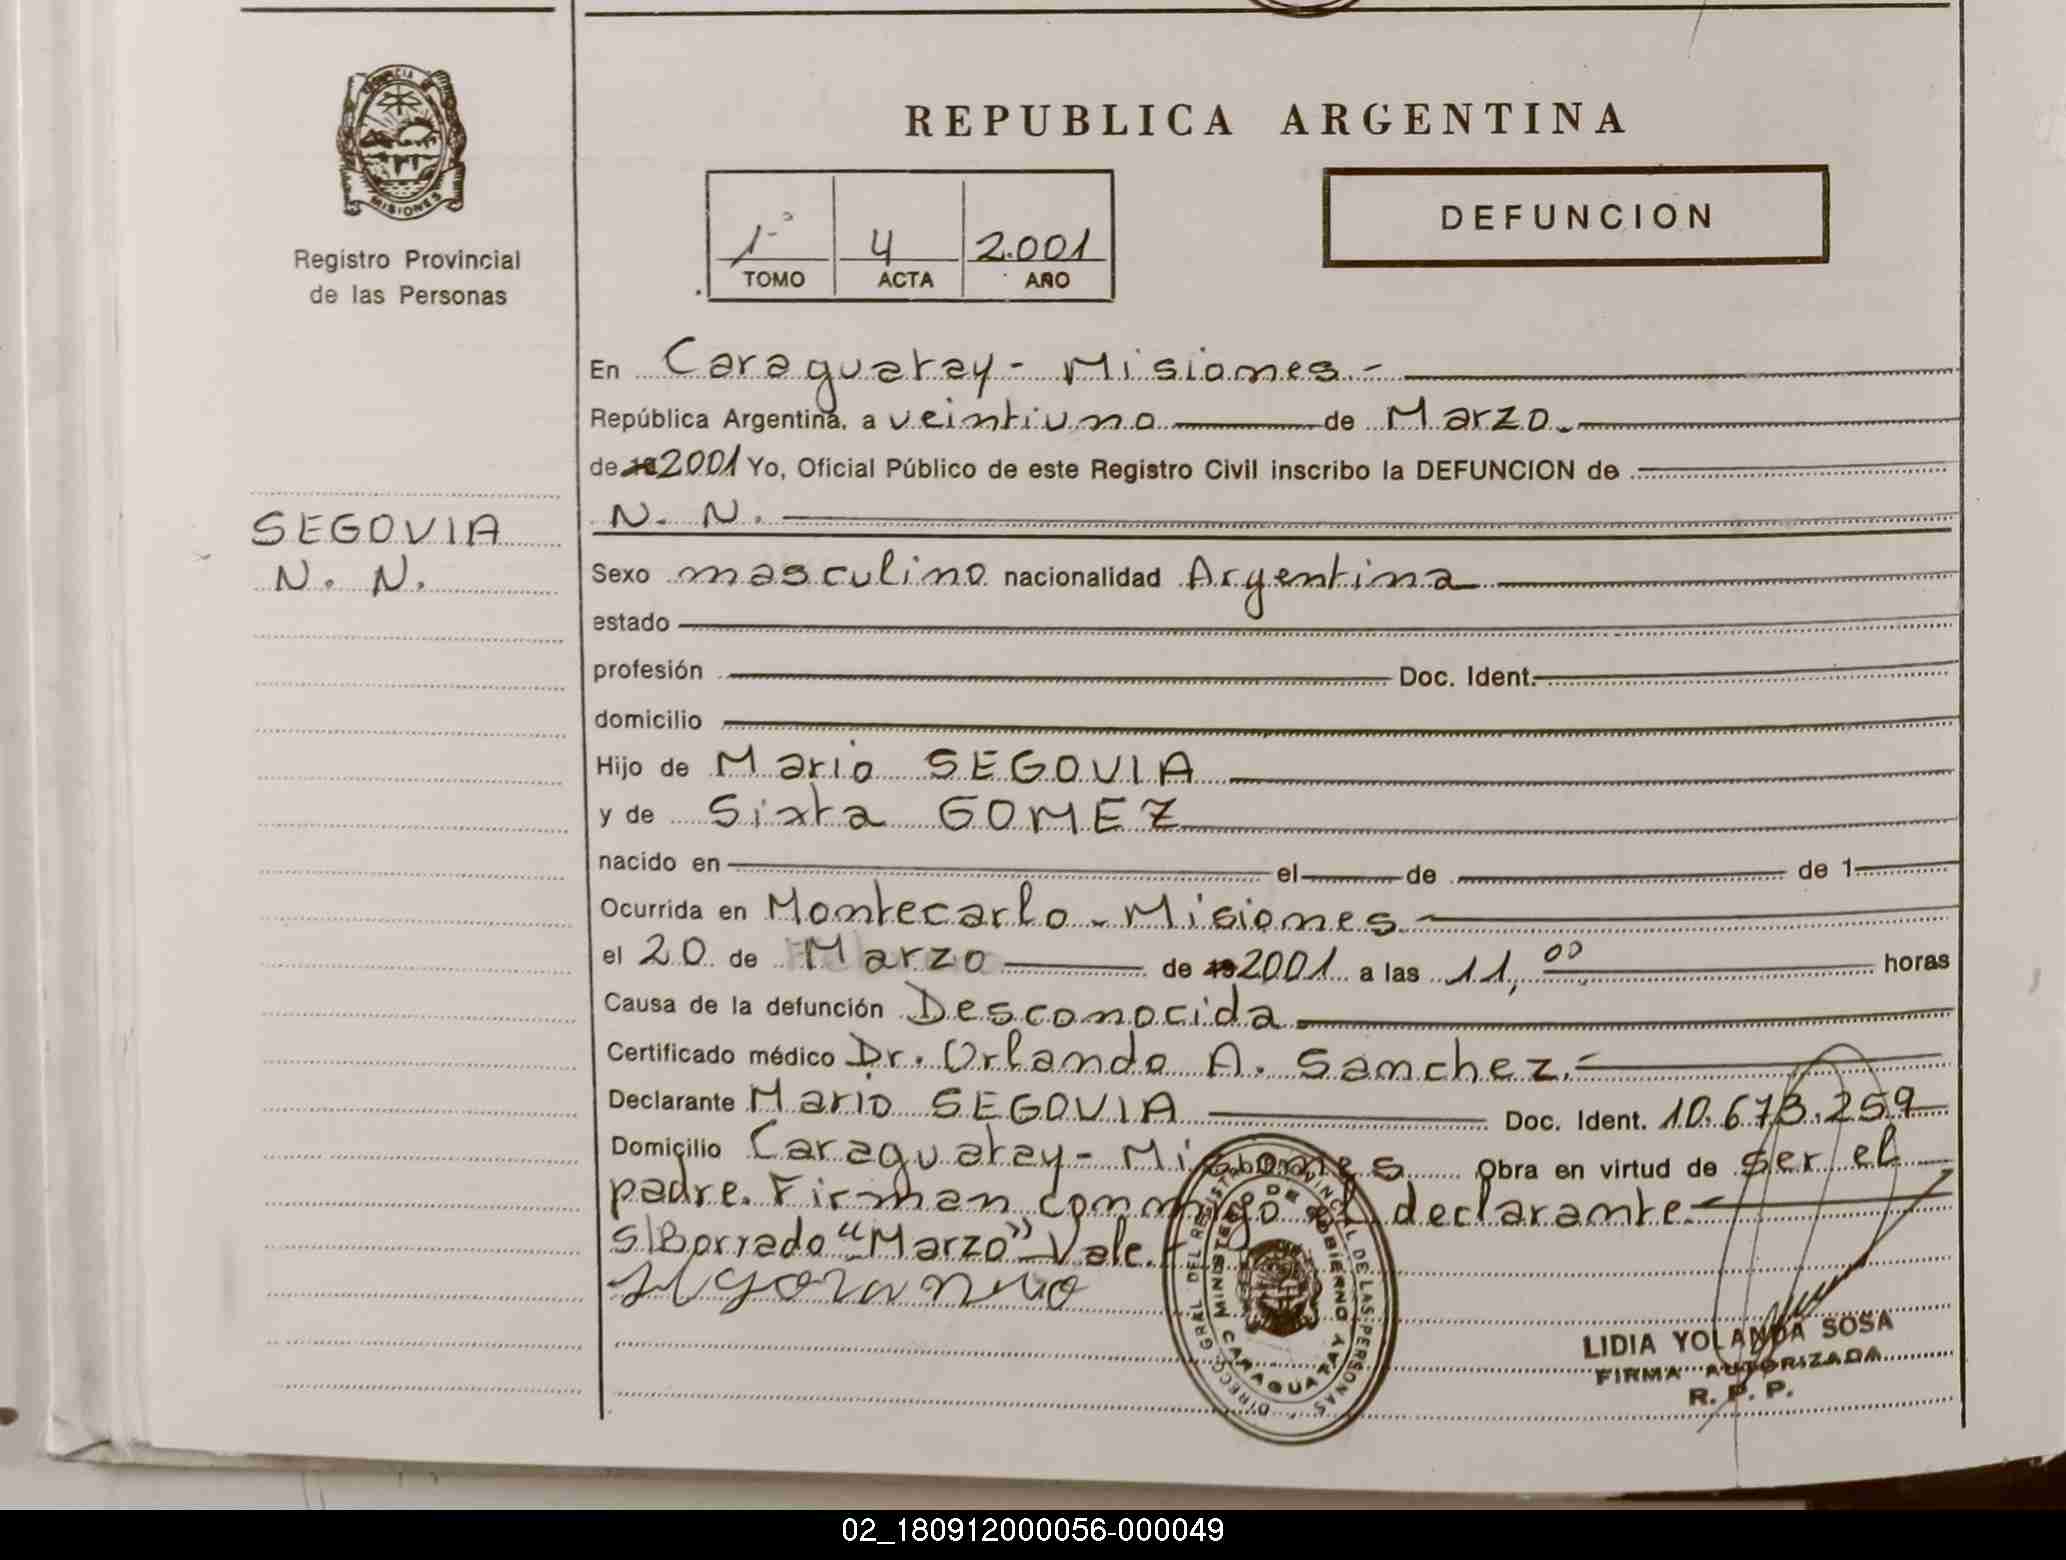 PROVINCIA DE
MISIONES
Registro Provincial
de las Personas
SEGOVIA
N. N.
REPUBLICA ARGENTINA
1º 4 2.001
TOMO ACTA AÑO
DEFUNCION
En Caraguatay - Misiones.-
República Argentina, a veintiuno de Marzo.
de 19 2001 Yo, Oficial Público de este Registro Civil inscribo la DEFUNCION de
N. N.
Sexo masculino nacionalidad Argentina
estado
profesión Doc. Ident.
domicilio
Hijo de Mario SEGOVIA
y de Sixta GOMEZ
nacido en el de de 1
Ocurrida en Montecarlo - Misiones
el 20 de Marzo de 19 2001 a las 11,00 horas
Causa de la defunción Desconocida
Certificado médico Dr. Orlando A. Sanchez.-
Declarante Mario SEGOVIA Doc. Ident. 10.673.259
Domicilio Caraguatay - Misiones Obra en virtud de ser el
padre. Firman conmigo el declarante.-
S/Borrado "Marzo" Vale.-
DIRECC. GRAL. DEL REGISTRO PROVINCIAL DE LAS PERSONAS
MINISTERIO DE GOBIERNO
CARAGUATAY
LIDIA YOLANDA SOSA
FIRMA AUTORIZADA
R. P. P.
02_180912000056-000049